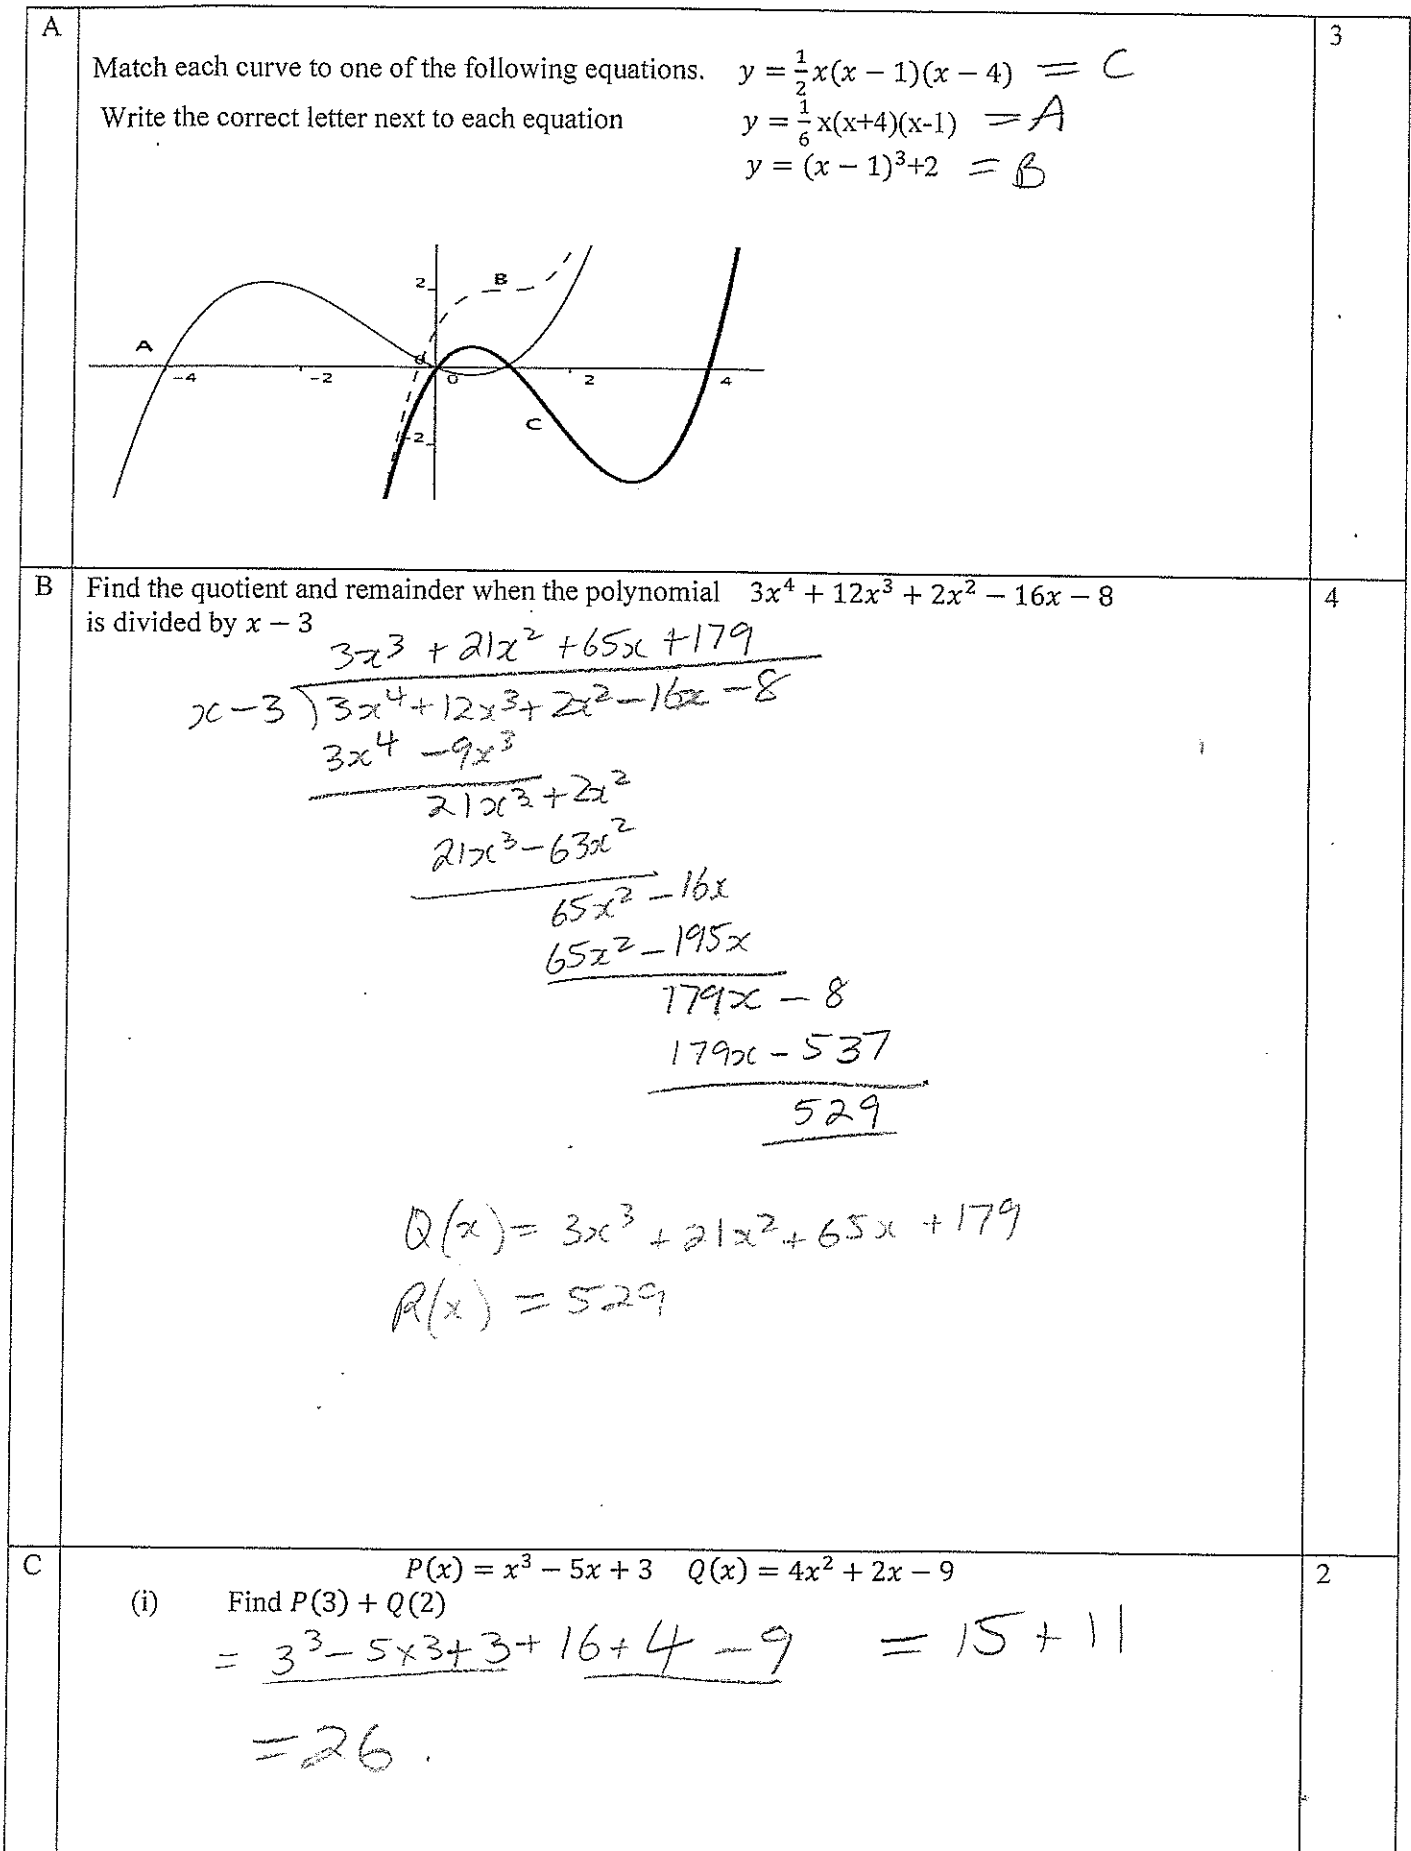 A
3
Match each curve to one of the following equations. y = 1/2 x(x − 1)(x − 4) = C
Write the correct letter next to each equation y = 1/6 x(x+4)(x-1) = A
y = (x − 1)³+2 = B
2
B
A
0
−4 −2 0 2 4
C
−2
B
Find the quotient and remainder when the polynomial 3x⁴ + 12x³ + 2x² − 16x − 8
4
is divided by x − 3
3x³ + 21x² + 65x + 179
x − 3 ) 3x⁴ + 12x³ + 2x² − 16x − 8
3x⁴ − 9x³
21x³ + 2x²
21x³ − 63x²
65x² − 16x
65x² − 195x
179x − 8
179x − 537
529
Q(x) = 3x³ + 21x² + 65x + 179
R(x) = 529
C
P(x) = x³ − 5x + 3 Q(x) = 4x² + 2x − 9
2
(i) Find P(3) + Q(2)
= 3³ − 5×3 + 3 + 16 + 4 − 9 = 15 + 11
= 26.